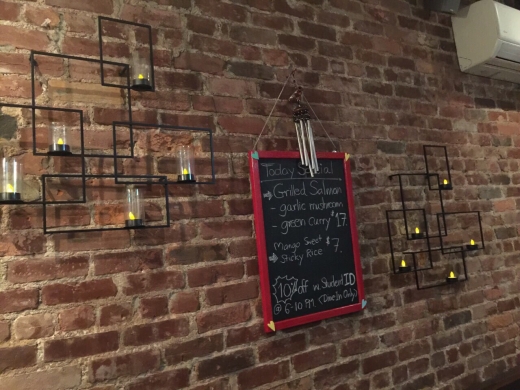 Today Special
→ Grilled Salmon
- garlic mushroom
- green curry $17.
Mango Sweet $7.
→ Sticky Rice
10% off w. Student ID
@ 6-10 PM. <Dine In Only>